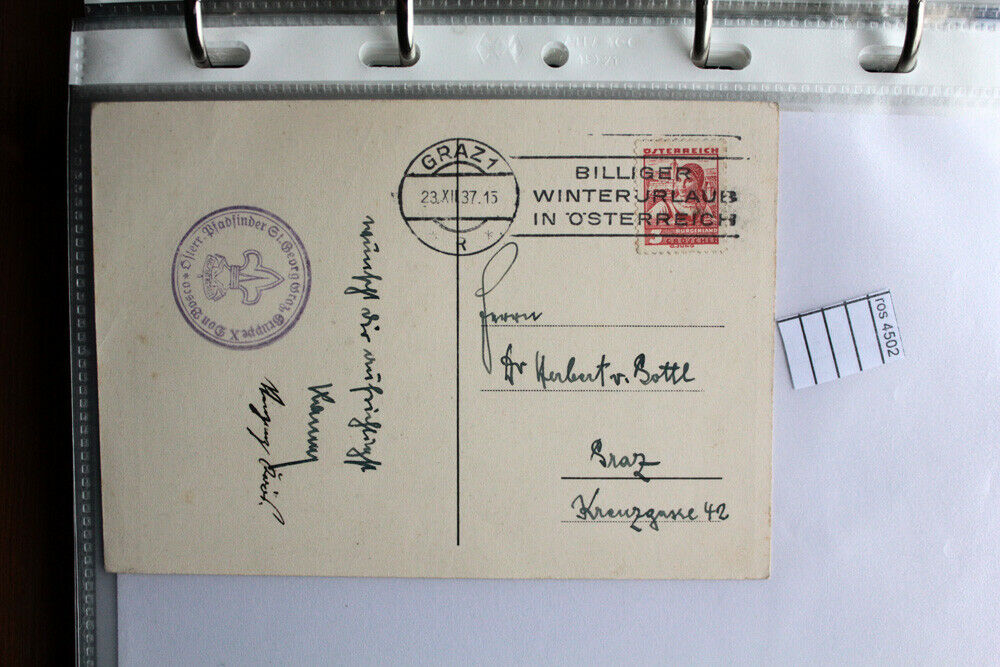 GRAZ 1
23.XII.37.15
R
BILLIGER
WINTERURLAUB
IN ÖSTERREICH
ÖSTERREICH
BURGENLAND
5 GROSCHEN
Österr. Pfadfinder St. Georg Graz Gruppe X Don Bosco
wünscht die aufrichtigst
Herrn
Dr Herbert v. Bottl
Graz
Kreuzgasse 42
ros 4502